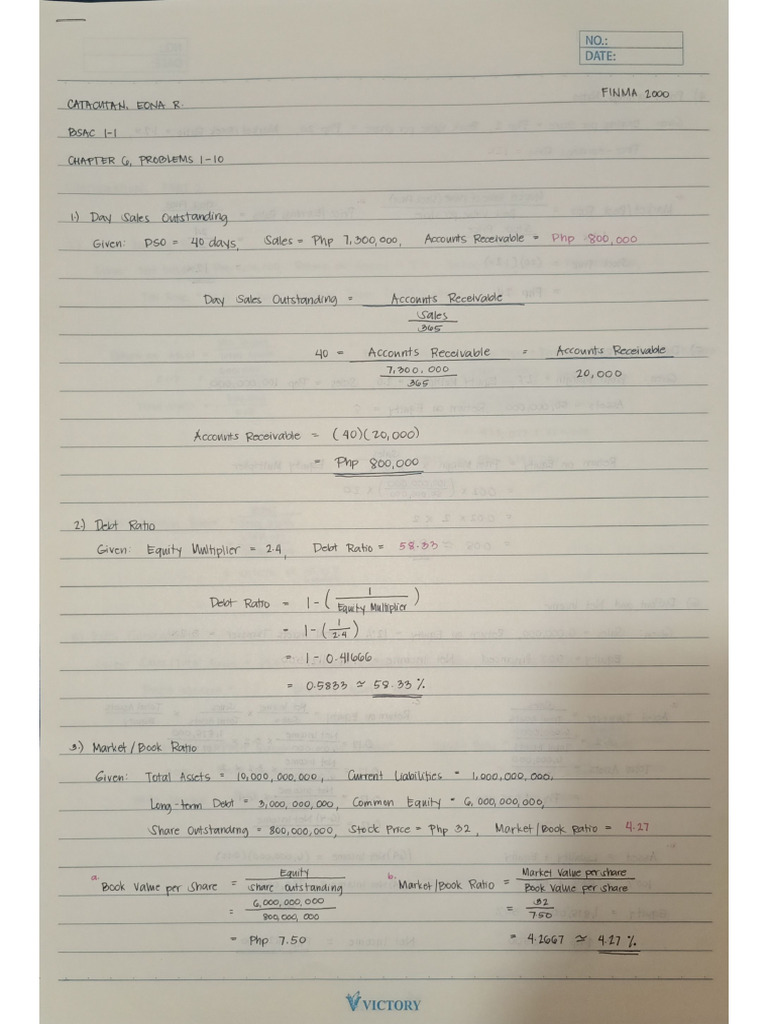 NO.:
DATE:
FINMA 2000
CATACUTAN, EONA R.
BSAC 1-1
CHAPTER 6, PROBLEMS 1-10
1.) Day Sales Outstanding
Given: DSO = 40 days, Sales = Php 7,300,000, Accounts Receivable = Php 800,000
Day Sales Outstanding = Accounts Receivable
Sales
365
40 = Accounts Receivable = Accounts Receivable
7,300,000 20,000
365
Accounts Receivable = (40)(20,000)
= Php 800,000
2.) Debt Ratio
Given: Equity Multiplier = 2.4, Debt Ratio = 58.33
Debt Ratio = 1 - ( 1 / Equity Multiplier )
= 1 - ( 1 / 2.4 )
= 1 - 0.41666
= 0.5833 ≃ 58.33 %
3.) Market/Book Ratio
Given: Total Assets = 10,000,000,000, Current Liabilities = 1,000,000,000,
Long-term Debt = 3,000,000,000, Common Equity = 6,000,000,000,
Share Outstanding = 800,000,000, Stock Price = Php 32, Market/Book Ratio = 4.27
a. Book Value per Share = Equity
Share Outstanding
= 6,000,000,000
800,000,000
= Php 7.50
b. Market/Book Ratio = Market Value per share
Book Value per share
= 32
7.50
= 4.2667 ≃ 4.27 %
VICTORY